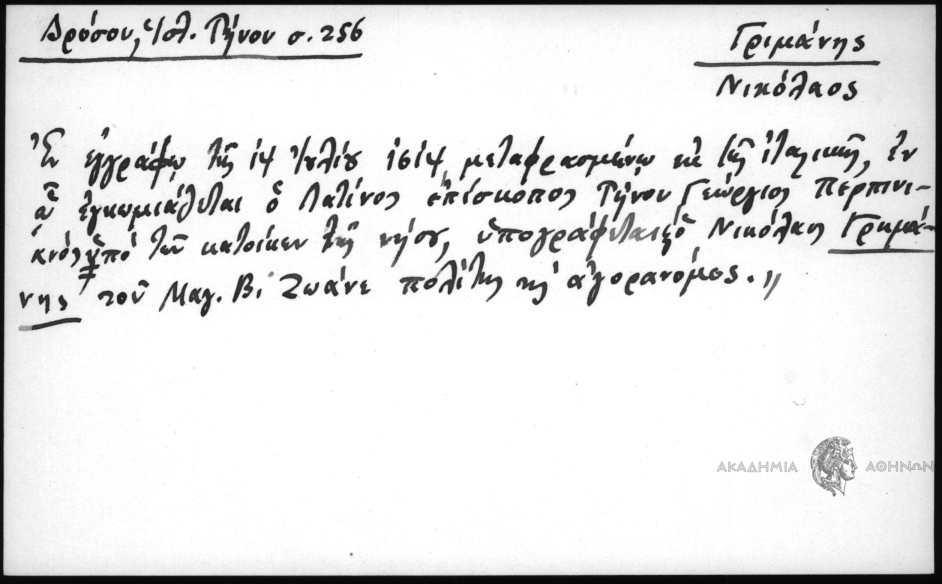 Δρόσου, Ἱστ. Τήνου σ. 256
Γριμάνης
Νικόλαος
Ἐν ἐγγράφῳ τῆς 14 Ἰουλίου 1614, μεταφρασμένῳ ἐκ τῆς ἰταλικῆς, ἐν
ᾧ ἐγκωμιάζεται ὁ Λατῖνος ἐπίσκοπος Τήνου Γεώργιος Περπινι-
ανὸς ὑπὸ τῶν κατοίκων τῆς νήσου, ὑπογράφεται ὁ Νικόλαος Γριμά-
νης τοῦ Μαγ. Βι Ζωάνε πολίτης κὶ ἀγορανόμος. //
ΑΚΑΔΗΜΙΑ ΑΘΗΝΩΝ